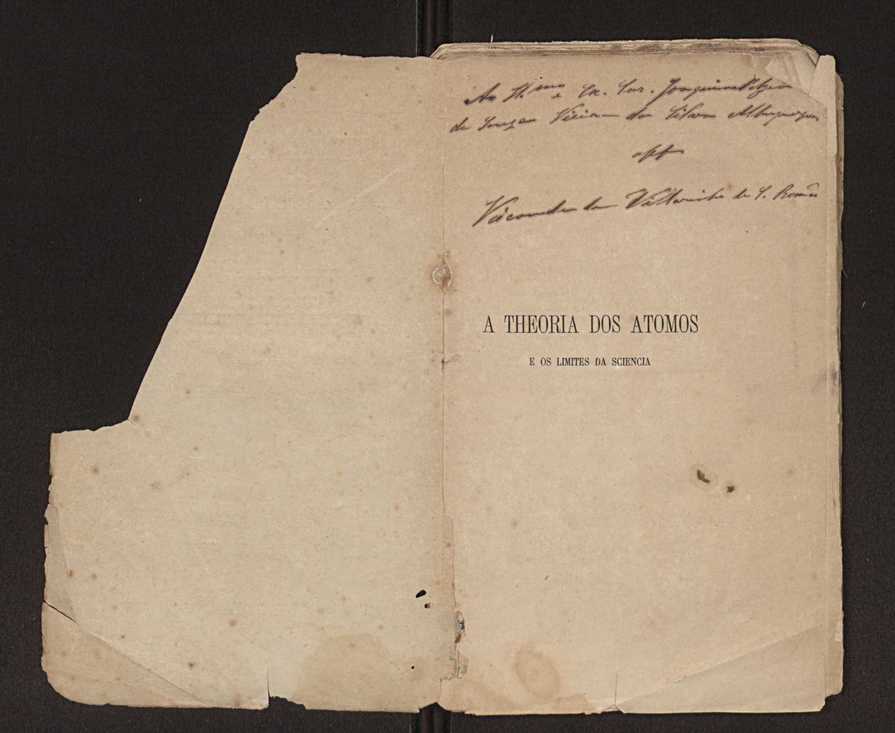 Ao Il.mo e Ex. Snr. Joaquim
de Souza Vieira da Silva Albuquerque
off
Visconde de Villarinho de S. Romão
A THEORIA DOS ATOMOS
E OS LIMITES DA SCIENCIA